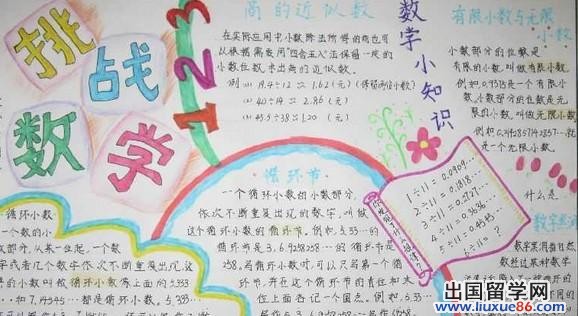 挑战
数学
1 2 3
商的近似数
在实际应用中小数除法所得的商也可
以根据需要用"四舍五入"法保留一定的
小数位数,求出商的近似数。
例 (1) 19.4÷12≈1.62(元) (保留两位小数)
(2) 40÷14≈2.86(元)
(3) 45.5÷38≈1.20(元)
数学小知识
有限小数与无限
小数
小数部分的位数是
有限的小数,叫做有限小数。
例如0.9375是一个有限小
数,小数部分的位数是无
限的小数,叫做无限小数。
是一个无限小数。
循环节
一个循环小数的小数部分,
依次不断重复出现的数字,叫做
这个循环小数的循环节。例如,5.33…的
循环节是3,6.9258258…的循环节是
258。写循环小数时,可以只写第一个循
环节,并在这个循环节的首位和末
位上面各记一个圆点。例如,5.33…
循环小数
一个小数的小
数部分,从某一位起,一个数
字或者几个数字依次不断重复出现,这
的小数叫做循环小数。像上面的5.333
…和7.14545…都是循环小数。
1÷11=0.0909…
2÷11=0.1818…
3÷11=0.2727…
4÷11=0.3636…
5÷11=0.4545…
6÷11=?
什么是
出国留学网
www.liuxue86.com